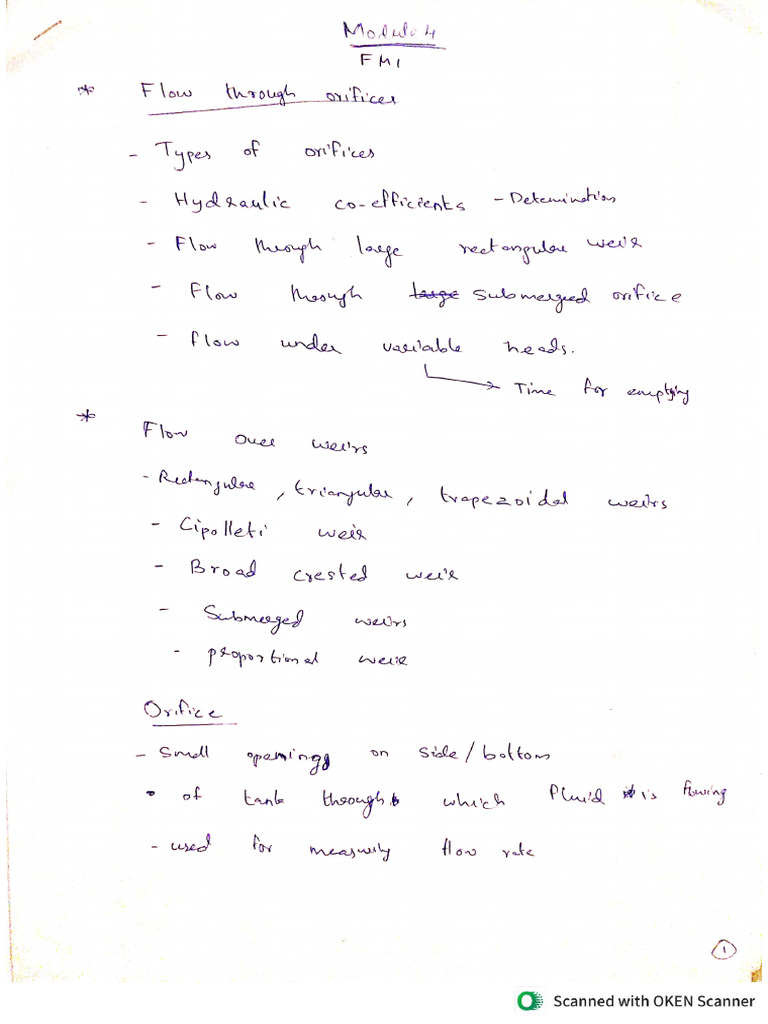 Module 4
FM1
* Flow through orifices
- Types of orifices
- Hydraulic co-efficients - Determination
- Flow through large rectangular weir
- Flow through large submerged orifice
- flow under variable heads.
→ Time for emptying
* Flow over weirs
- Rectangular, triangular, trapezoidal weirs
- Cipolleti weir
- Broad crested weir
- Submerged weirs
- proportional weir
Orifice
- Small opening on side/bottom
• of tank through which fluid is flowing
- used for measuring flow rate
1
Scanned with OKEN Scanner